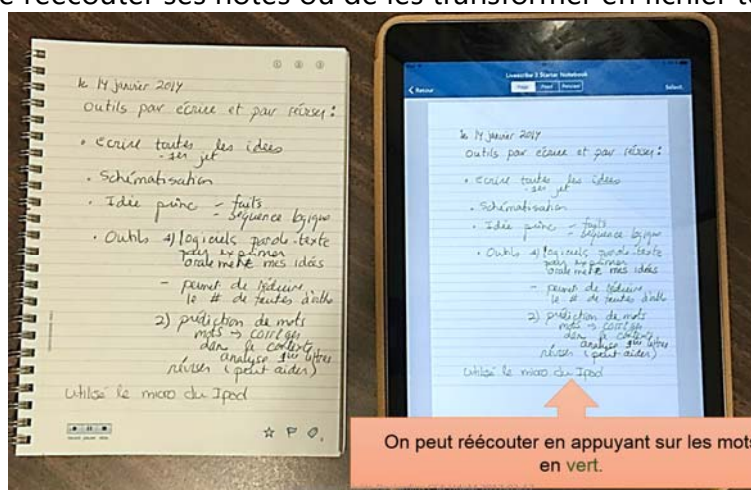 e réécouter ses notes ou de les transformer en fichier te
le 14 janvier 2014
Outils par écrire et par réviser :
• écrire toutes les idées
- 1er jet
• Schématisation
• Idée princ - faits
- séquence logique
• Outils 1) logiciels parole-texte
pour exprimer
oralement mes idées
- permet de réduire
le # de fautes d'ortho
2) prédiction de mots
mots → corriger
dans le contexte
analyse 1ère lettres
réviser (peut aider)
utilisé le micro du Ipod
Livescribe 3 Starter Notebook
Retour
Page
Feed
Pencast
Select.
le 14 janvier 2014
Outils par écrire et par réviser :
• écrire toutes les idées
- 1er jet
• Schématisation
• Idée princ - faits
- séquence logique
• Outils 1) logiciels parole-texte
pour exprimer
oralement mes idées
- permet de réduire
le # de fautes d'ortho
2) prédiction de mots
mots → corriger
dans le contexte
analyse 1ère lettres
réviser (peut aider)
utilisé le micro du Ipod
On peut réécouter en appuyant sur les mots
en vert.